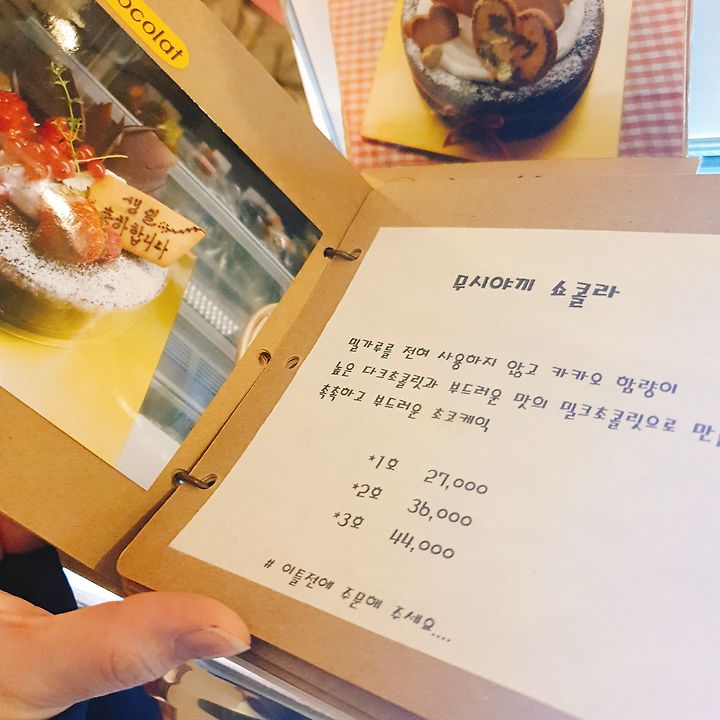 ocolat
생일
축하합니다
무시야끼 쇼콜라
밀가루를 전혀 사용하지 않고 카카오 함량이
높은 다크초콜릿과 부드러운 맛의 밀크초콜릿으로
촉촉하고 부드러운 초코케익
*1호 27,000
*2호 36,000
*3호 44,000
# 이틀전에 주문해 주세요....